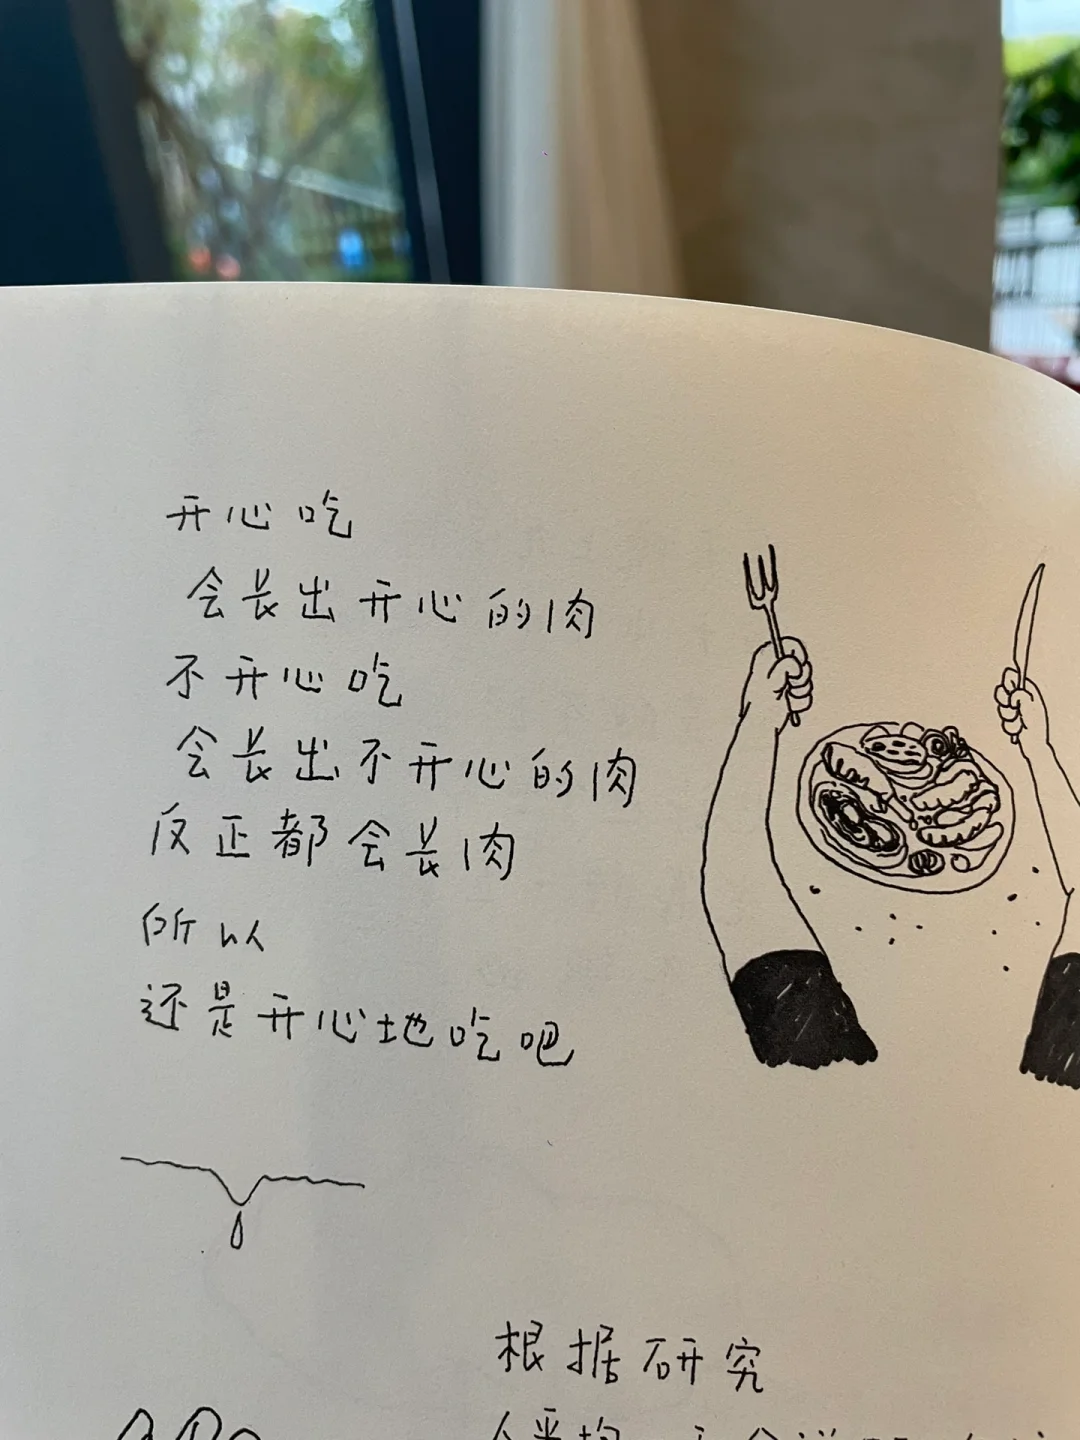 开心吃
会长出开心的肉
不开心吃
会长出不开心的肉
反正都会长肉
所以
还是开心地吃吧
根据研究
人平均一天会说